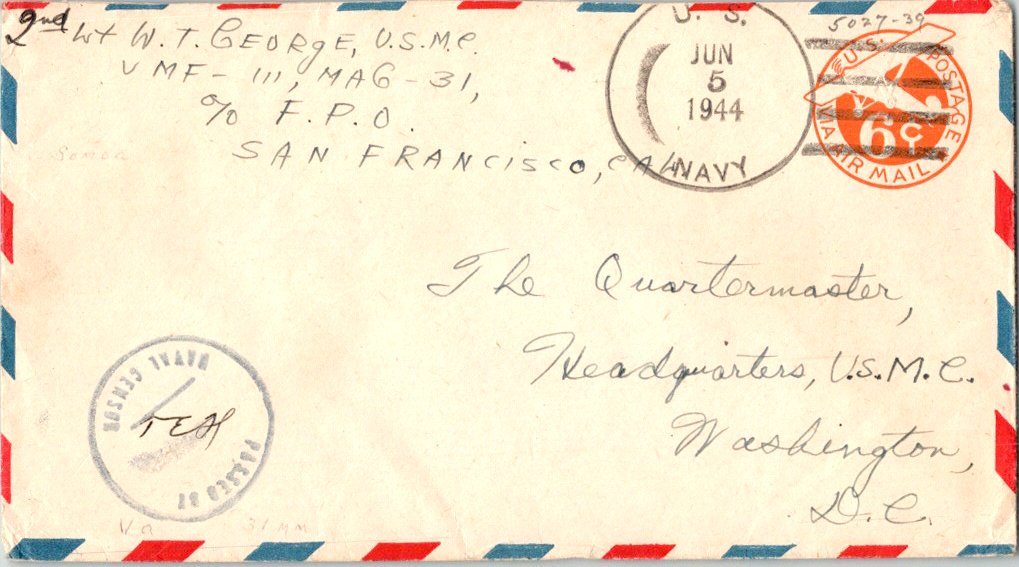 2nd Lt W. T. GEORGE, U.S.M.C.
VMF-111, MAG-31,
c/o F.P.O.
SAN FRANCISCO, CAL.
U. S.
JUN
5
1944
NAVY
5027-39
U.S. POSTAGE
6¢
VIA AIR MAIL
The Quartermaster,
Headquarters, U.S.M.C.
Washington,
D.C.
PASSED BY
NAVAL CENSOR
Va
31 MM